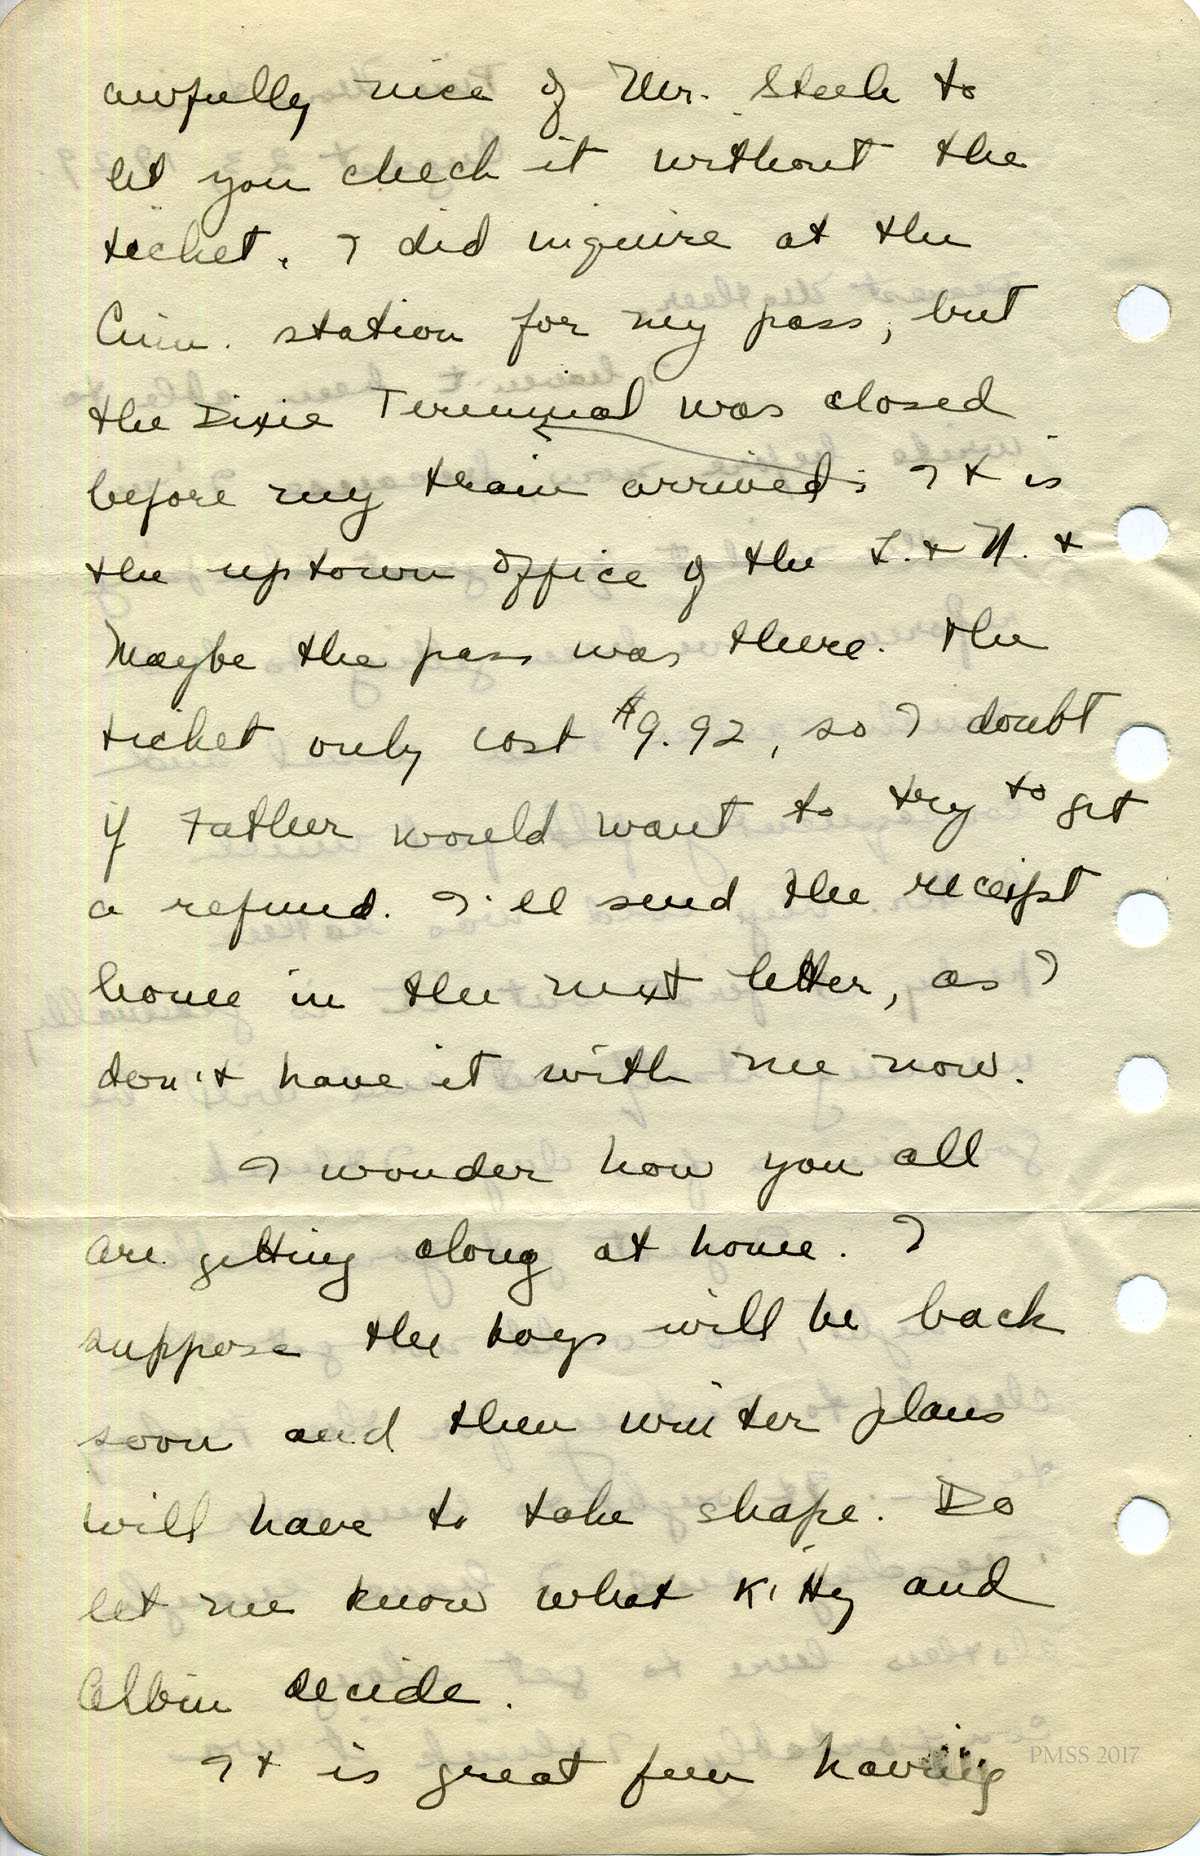 awfully nice of Mr. Steele to
let you check it without the
ticket. I did inquire at the
Cinn. station for my pass, but
the Dixie Terminal was closed
before my train arrived; It is
the uptown office of the L. & N. &
Maybe the pass was there. The
ticket only cost $9.92, so I doubt
if Father would want to try to get
a refund. I'll send the receipt
home in the next letter, as I
don't have it with me now.
I wonder how you all
are getting along at home. I
suppose the boys will be back
soon and then winter plans
will have to take shape. Do
let me know what Kitty and
Albin decide.
It is great fun having
PMSS 2017